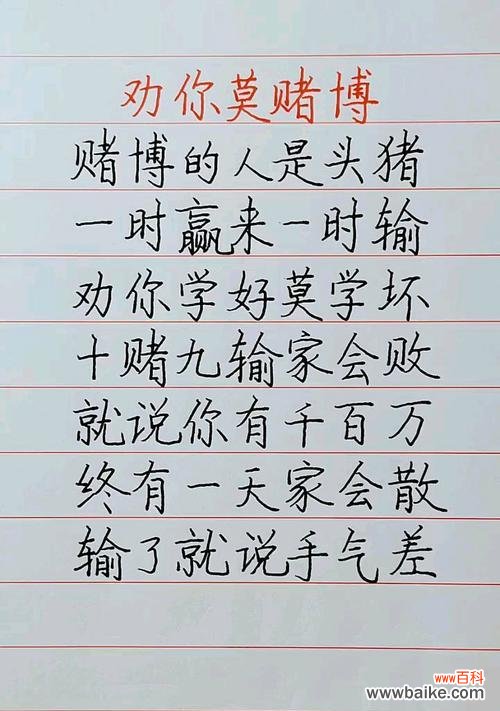 劝你莫赌博
赌博的人是头猪
一时赢来一时输
劝你学好莫学坏
十赌九输家会败
就说你有千百万
终有一天家会散
输了就说手气差
www百科
www.baike.com